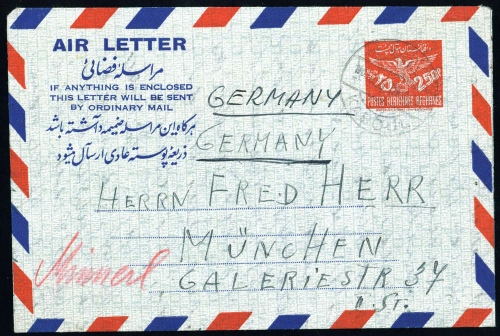 AIR LETTER
مراسله فضائی
IF ANYTHING IS ENCLOSED
THIS LETTER WILL BE SENT
BY ORDINARY MAIL
هرگاه این مراسله ضمیمه داشته باشد
ذریعه پوسته عادی ارسال میشود
۲۵۰
2.50P
POSTES AERIENNES AFGHANES
GERMANY
GERMANY
HERRN FRED HERR
MÜNCHEN
GALERIESTR 37
II. ST.